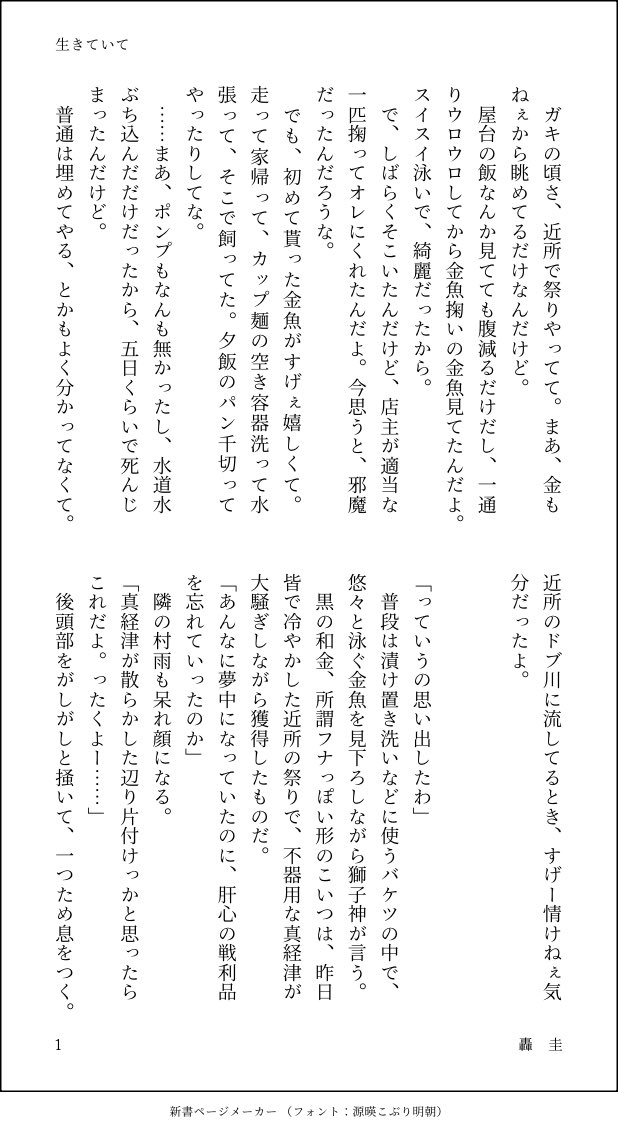 生きていて
ガキの頃さ、近所で祭りやってて。まあ、金も
ねぇから眺めてるだけなんだけど。
屋台の飯なんか見てても腹減るだけだし、一通
りウロウロしてから金魚掬いの金魚見てたんだよ。
スイスイ泳いで、綺麗だったから。
で、しばらくそこいたんだけど、店主が適当な
一匹掬ってオレにくれたんだよ。今思うと、邪魔
だったんだろうな。
でも、初めて貰った金魚がすげぇ嬉しくて。
走って家帰って、カップ麺の空き容器洗って水
張って、そこで飼ってた。夕飯のパン千切って
やったりしてな。
……まあ、ポンプもなんも無かったし、水道水
ぶち込んだだけだったから、五日くらいで死んじ
まったんだけど。
普通は埋めてやる、とかもよく分かってなくて。
近所のドブ川に流してるとき、すげー情けねぇ気
分だったよ。
「っていうの思い出したわ」
普段は漬け置き洗いなどに使うバケツの中で、
悠々と泳ぐ金魚を見下ろしながら獅子神が言う。
黒の和金、所謂フナっぽい形のこいつは、昨日
皆で冷やかした近所の祭りで、不器用な真経津が
大騒ぎしながら獲得したものだ。
「あんなに夢中になっていたのに、肝心の戦利品
を忘れていったのか」
隣の村雨も呆れ顔になる。
「真経津が散らかした辺り片付けっかと思ったら
これだよ。ったくよー……」
後頭部をがしがしと掻いて、一つため息をつく。
1
轟 圭
新書ページメーカー（フォント：源暎こぶり明朝）